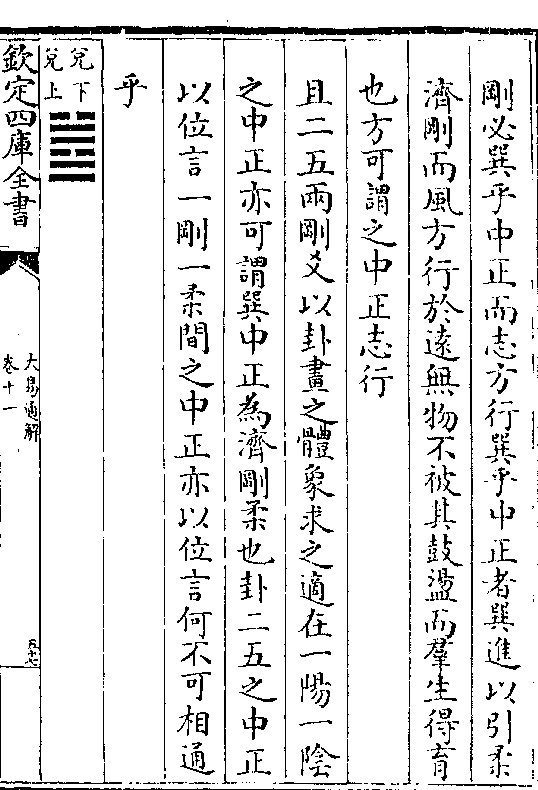 剛必巽乎中正而志方行巽乎中正者巽進以引柔
濟剛而風方行於逺無物不被其鼓盪而羣生得育
也方可謂之中正志行
且二五兩剛爻以卦畫之體象求之適在一陽一陰
之中正亦可謂巽中正為濟剛柔也卦二五之中正
以位言一剛一柔間之中正亦以位言何不可相通
乎
兌下
兌上
欽定四庫全書
大易通解
卷十一
五十七